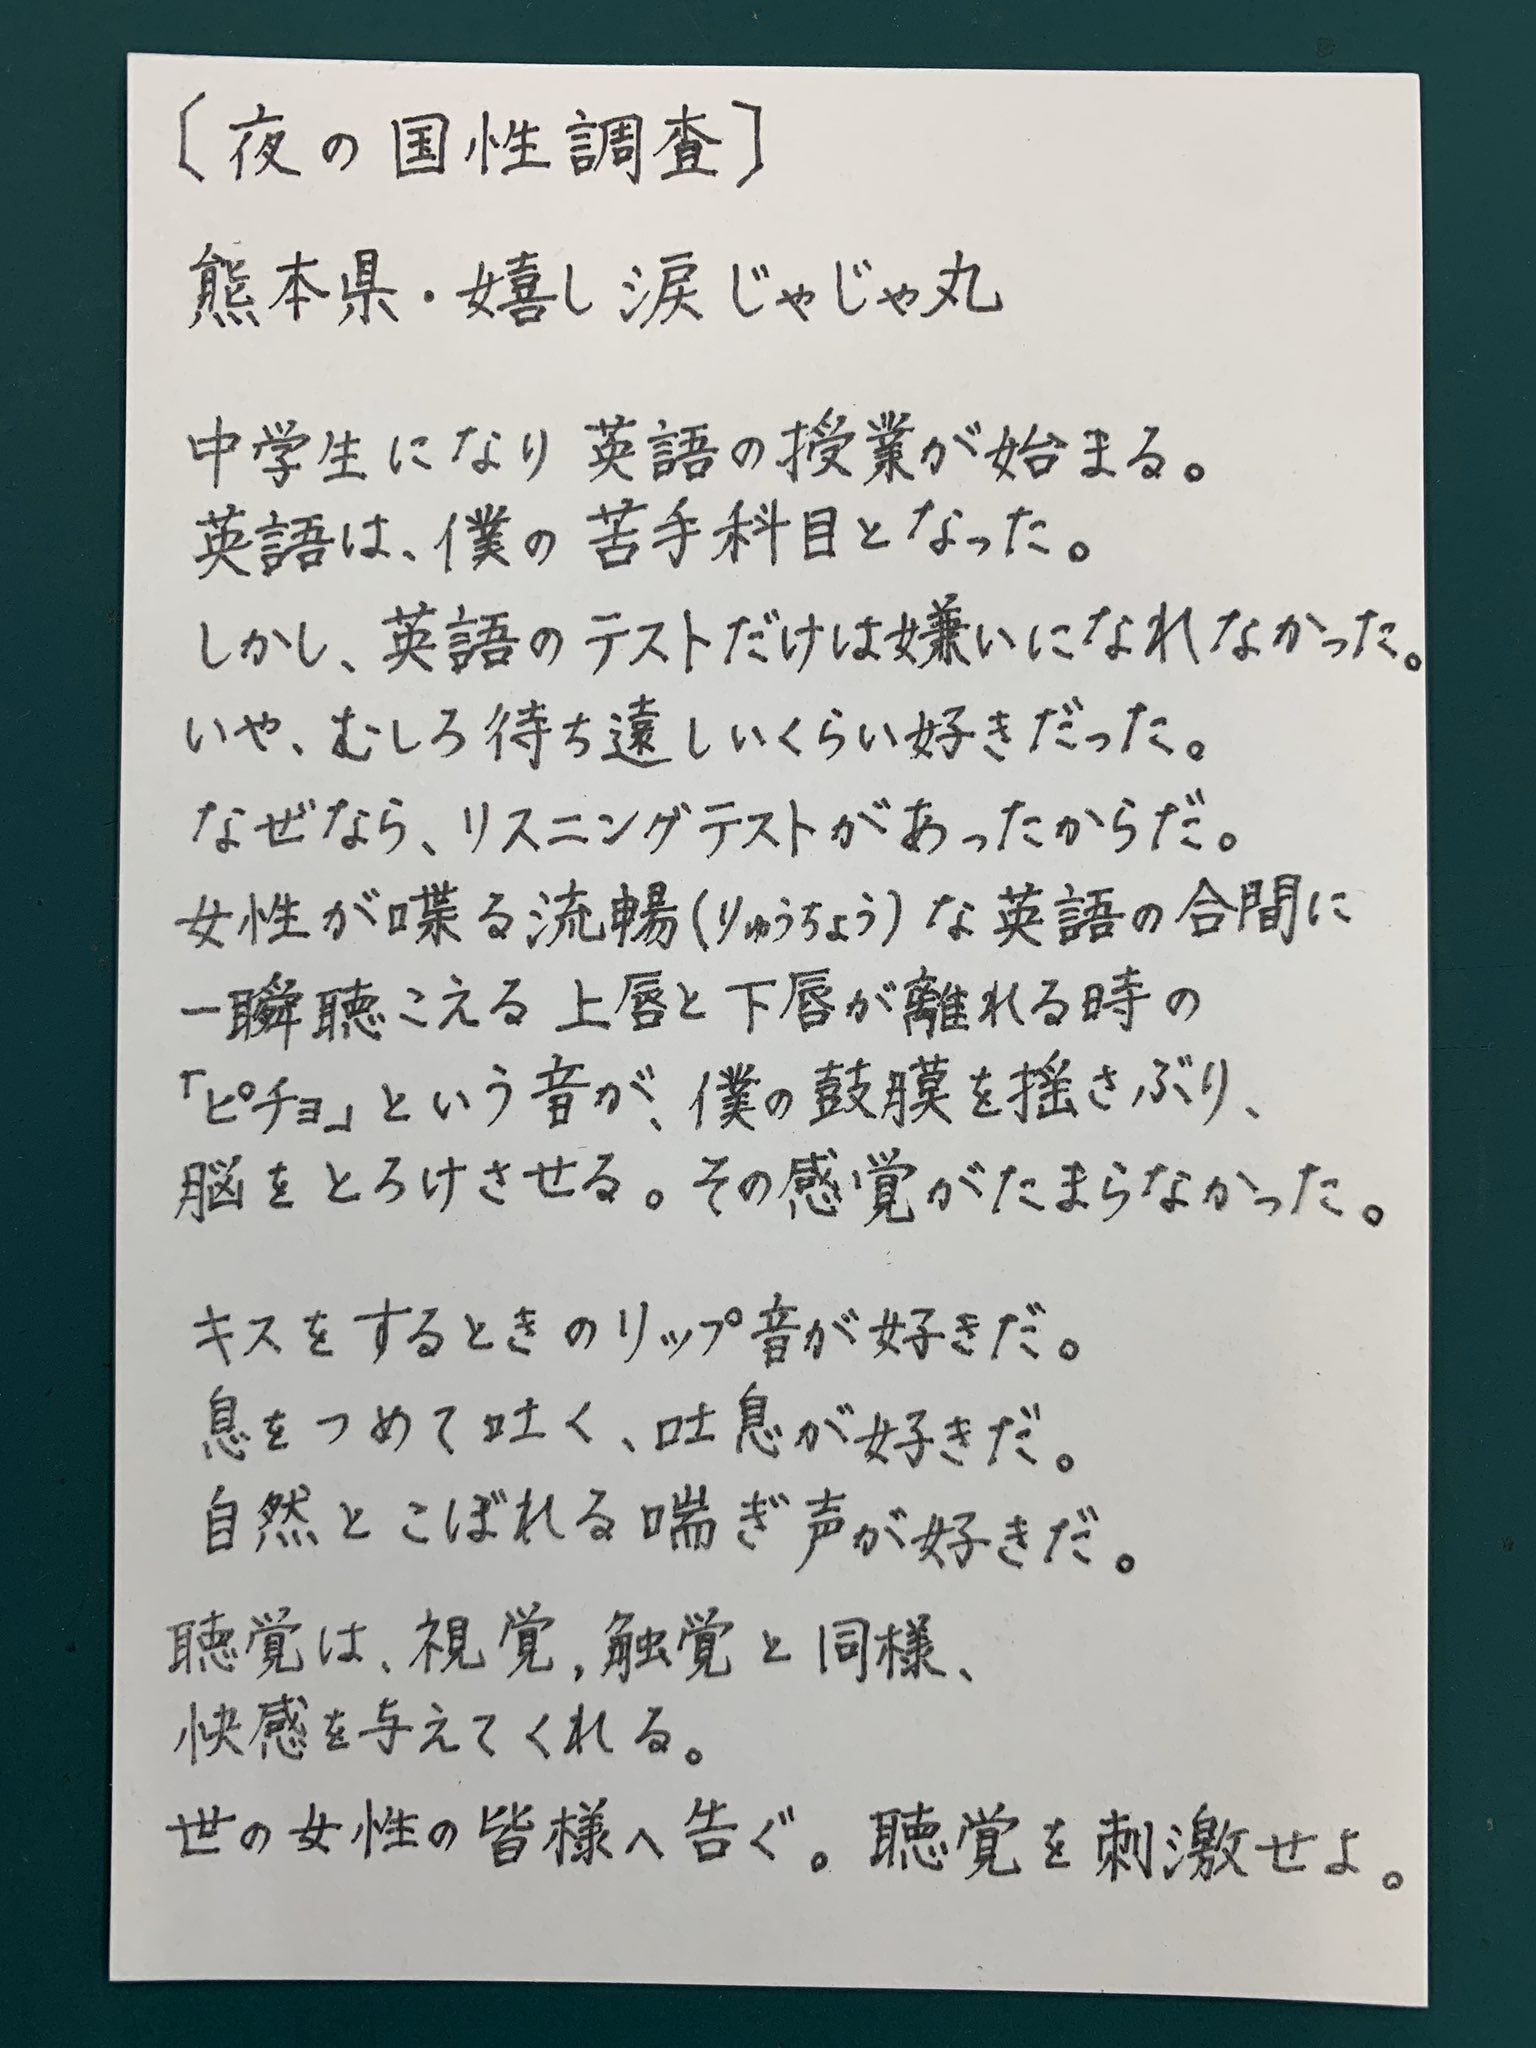 〔夜の国性調査〕
熊本県・嬉し涙じゃじゃ丸
中学生になり英語の授業が始まる。
英語は、僕の苦手科目となった。
しかし、英語のテストだけは嫌いになれなかった。
いや、むしろ待ち遠しいくらい好きだった。
なぜなら、リスニングテストがあったからだ。
女性が喋る流暢(りゅうちょう)な英語の合間に
一瞬聴こえる上唇と下唇が離れる時の
「ピチョ」という音が、僕の鼓膜を揺さぶり、
脳をとろけさせる。その感覚がたまらなかった。
キスをするときのリップ音が好きだ。
息をつめて吐く、吐息が好きだ。
自然とこぼれる喘ぎ声が好きだ。
聴覚は、視覚,触覚と同様、
快感を与えてくれる。
世の女性の皆様へ告ぐ。聴覚を刺激せよ。